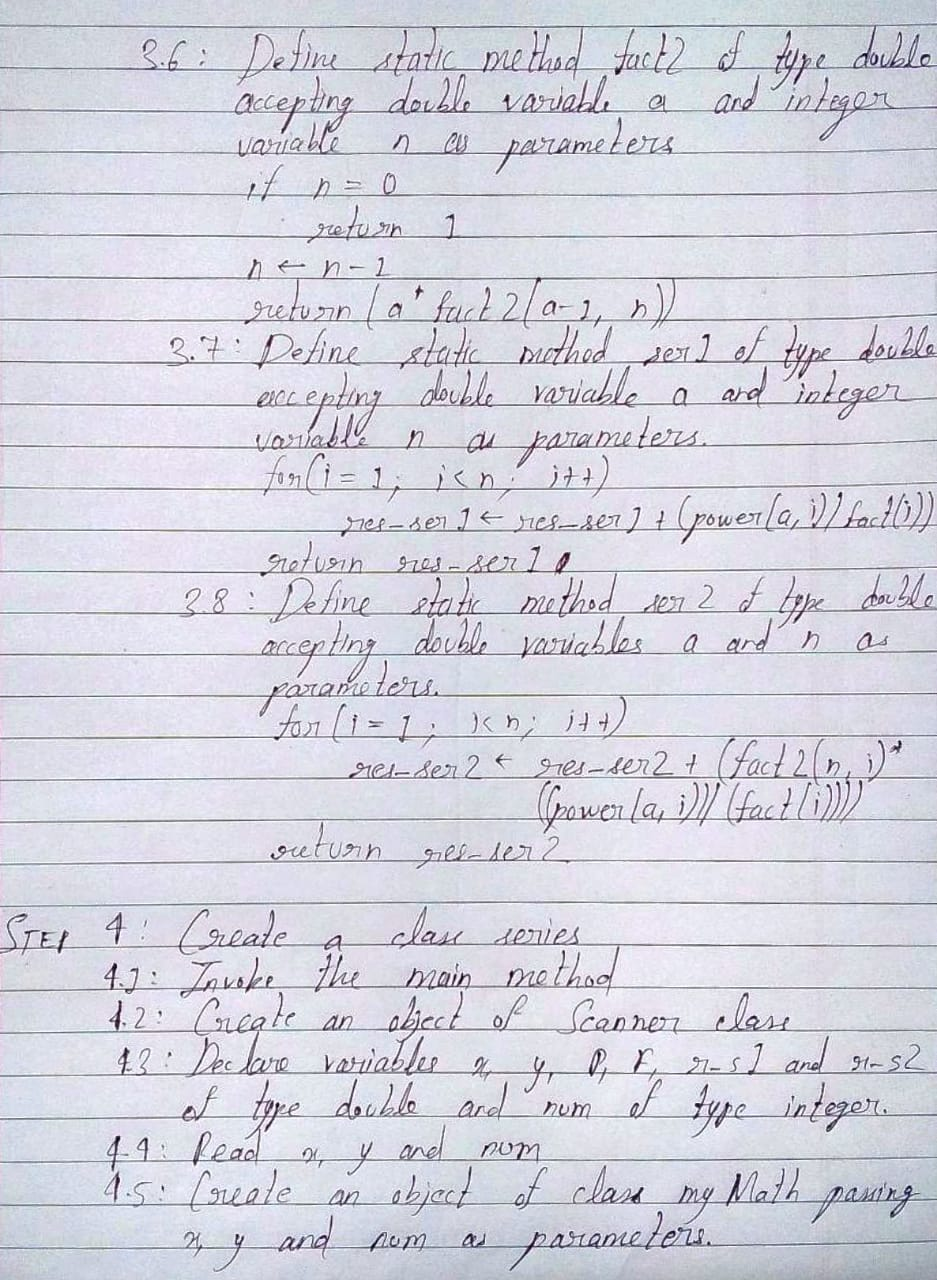 3.6 : Define static method fact2 of type double
accepting double variable a and integer
variable n as parameters
if n = 0
return 1
n ← n - 1
return (a * fact2(a-1, n))
3.7 : Define static method ser1 of type double
accepting double variable a and integer
variable n as parameters.
for(i = 1; i<n; i++)
res-ser1 ← res-ser1 + (power(a, i)/fact(i))
return res-ser1
3.8 : Define static method ser2 of type double
accepting double variables a and n as
parameters.
for (i = 1; i<n; i++)
res-ser2 ← res-ser2 + (fact2(n, i)*
((power(a, i))/(fact(i))))
return res-ser2
STEP 4 : Create a class series
4.1 : Invoke the main method
4.2 : Create an object of Scanner class
4.3 : Declare variables x, y, P, F, r-s1 and r-s2
of type double and num of type integer.
4.4 : Read x, y and num
4.5 : Create an object of class myMath passing
x, y and num as parameters.